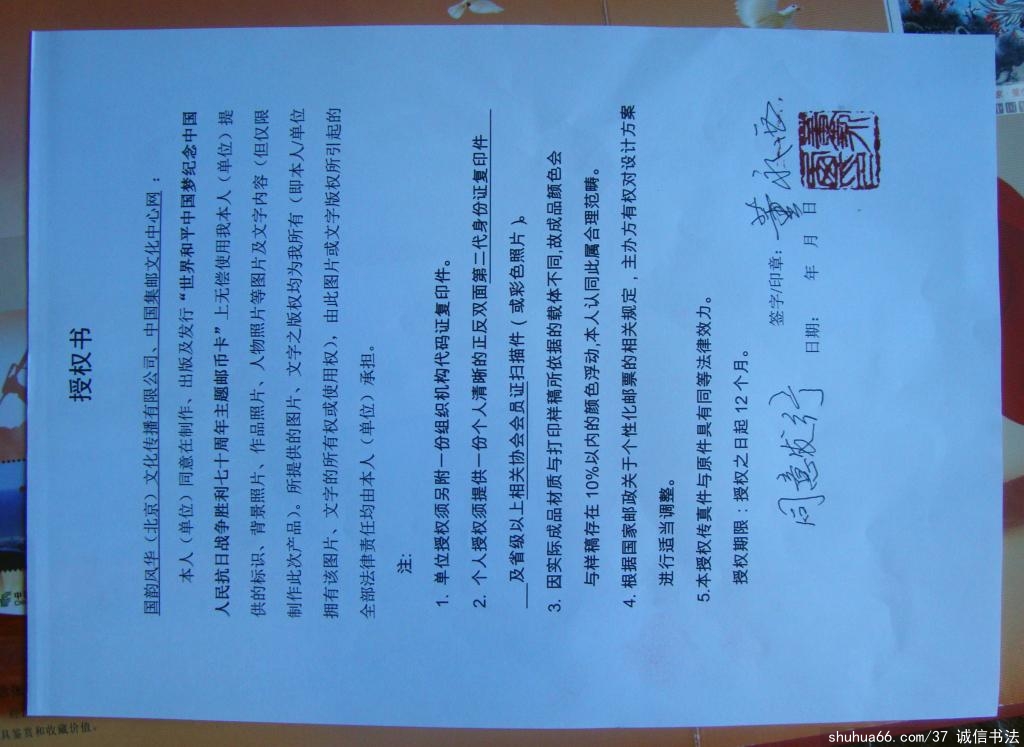 授权书
国韵风华（北京）文化传播有限公司、中国集邮文化中心网：
本人（单位）同意在制作、出版及发行“世界和平中国梦纪念中国
人民抗日战争胜利七十周年主题邮币卡”上无偿使用我本人（单位）提
供的标识、背景照片、作品照片、人物照片等图片及文字内容（但仅限
制作此次产品）。所提供的图片、文字之版权均为我所有（即本人/单位
拥有该图片、文字的所有权或使用权），由此图片或文字版权所引起的
全部法律责任均由本人（单位）承担。
注:
1. 单位授权须另附一份组织机构代码证复印件。
2. 个人授权须提供一份个人清晰的正反双面第二代身份证复印件
及省级以上相关协会会员证扫描件（或彩色照片）。
3. 因实际成品材质与打印样稿所依据的载体不同,故成品颜色会
与样稿存在10%以内的颜色浮动,本人认同此属合理范畴。
4. 根据国家邮政关于个性化邮票的相关规定，主办方有权对设计方案
进行适当调整。
5.本授权传真件与原件具有同等法律效力。
授权期限：授权之日起12个月。
签字/印章：董
同意发行
日期： 年 月 日
具鉴赏和收藏价值。
shuhua66.com/37 诚信书法